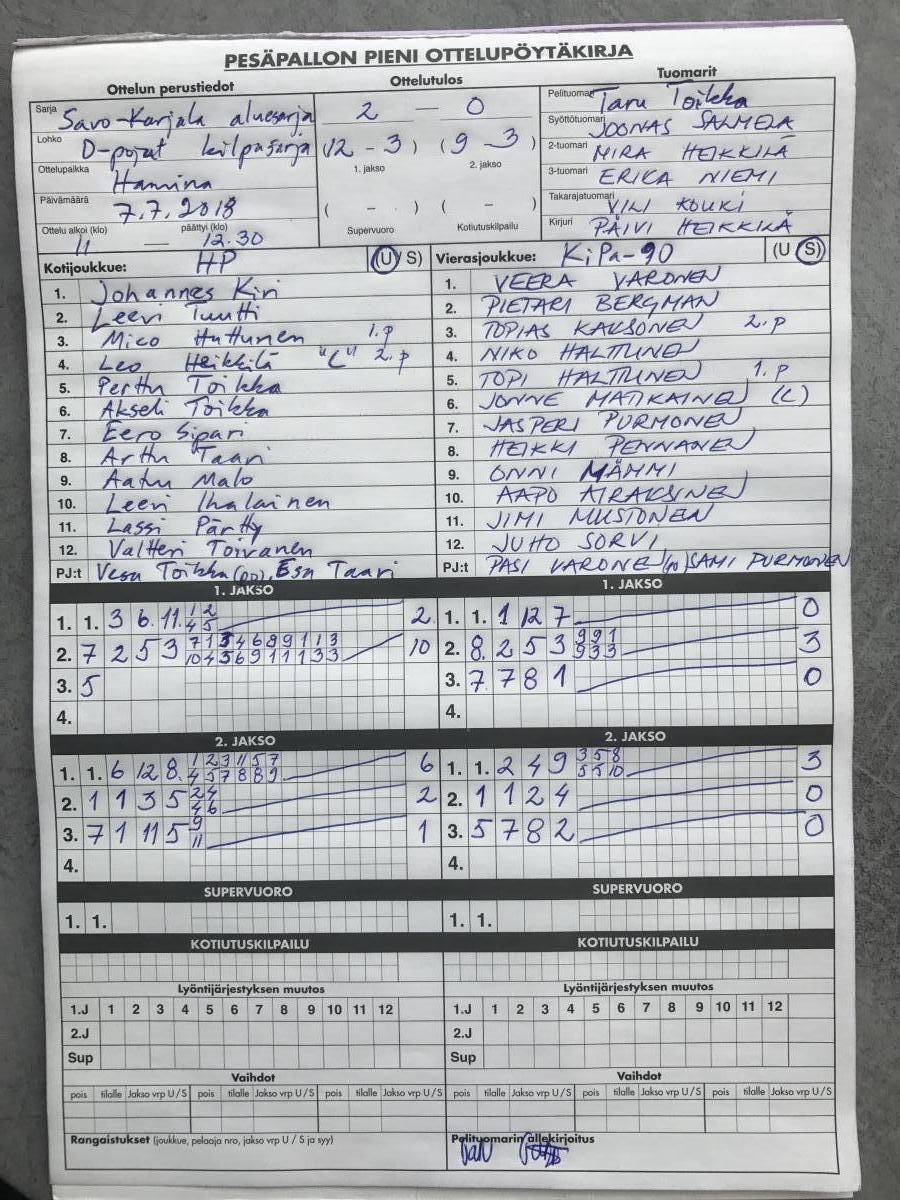 PESÄPALLON PIENI OTTELUPÖYTÄKIRJA
Ottelun perustiedot Ottelutulos Tuomarit
Sarja Savo-Karjala aluesarja
Lohko D-pojat kilpasarja
Ottelupaikka Hamina
Päivämäärä 7.7.2018
Ottelu alkoi (klo) 11 — päättyi (klo) 12.30
2 — 0
(12 - 3) (9 - 3)
1. jakso 2. jakso
( - ) ( - )
Supervuoro Kotiutuskilpailu
Pelituomari Taru Toikka
Syöttötuomari JOONAS SALMELA
2-tuomari MIRA HEIKKILÄ
3-tuomari ERIKA NIEMI
Takarajatuomari VILI KOUKI
Kirjuri PÄIVI HEIKKILÄ
Kotijoukkue: HP (U S)
1. Johannes Kiri
2. Leevi Tuutti
3. Mico Huttunen 1.p
4. Leo Heikkilä "C" 2.p
5. Perttu Toikka
6. Akseli Toikka
7. Eero Sipari
8. Arttu Taari
9. Aatu Malo
10. Leevi Ihalainen
11. Lassi Pärtty
12. Valtteri Toivanen
PJ:t Vesa Toikka (PP), Esa Taari
Vierasjoukkue: KiPa-90 (U S)
1. VEERA VARONEN
2. PIETARI BERGMAN
3. TOPIAS KAKSONEN 2.p
4. NIKO HALTTUNEN
5. TOPI HALTTUNEN 1.p
6. JONNE MATIKAINEN (C)
7. JASPERI PURMONEN
8. HEIKKI PENNANEN
9. ONNI MÄMMI
10. AAPO AIRAKSINEN
11. JIMI MUSTONEN
12. JUHO SORVI
PJ:t PASI VARONEN SAMI PURMONEN
1. JAKSO
1. 1. 3 6 11 1 2 2
4 5
2. 7 2 5 3 7 1 3 4 6 8 9 1 1 3 10
10 4 5 6 9 11 1 3 3
3. 5
4.
1. JAKSO
1. 1. 1 12 7 0
2. 8. 2 5 3 9 9 1 3
9 3 3
3. 7 7 8 1 0
4.
2. JAKSO
1. 1. 6 12 8. 1 2 3 11 5 7 6
4 5 7 8 8 9
2. 1 1 3 5 2 4 2
4 6
3. 7 1 11 5 9 1
11
4.
2. JAKSO
1. 1. 2 4 9 3 5 8 3
5 5 10
2. 1 1 2 4 0
3. 5 7 8 2 0
4.
SUPERVUORO SUPERVUORO
1. 1. 1. 1.
KOTIUTUSKILPAILU KOTIUTUSKILPAILU
Lyöntijärjestyksen muutos Lyöntijärjestyksen muutos
1.J 1 2 3 4 5 6 7 8 9 10 11 12 1.J 1 2 3 4 5 6 7 8 9 10 11 12
2.J 2.J
Sup Sup
Vaihdot Vaihdot
pois tilalle Jakso vrp U / S pois tilalle Jakso vrp U / S pois tilalle Jakso vrp U / S pois tilalle Jakso vrp U / S pois tilalle Jakso vrp U / S pois tilalle Jakso vrp U / S
Rangaistukset (joukkue, pelaaja nro, jakso vrp U / S ja syy) Pelituomarin allekirjoitus